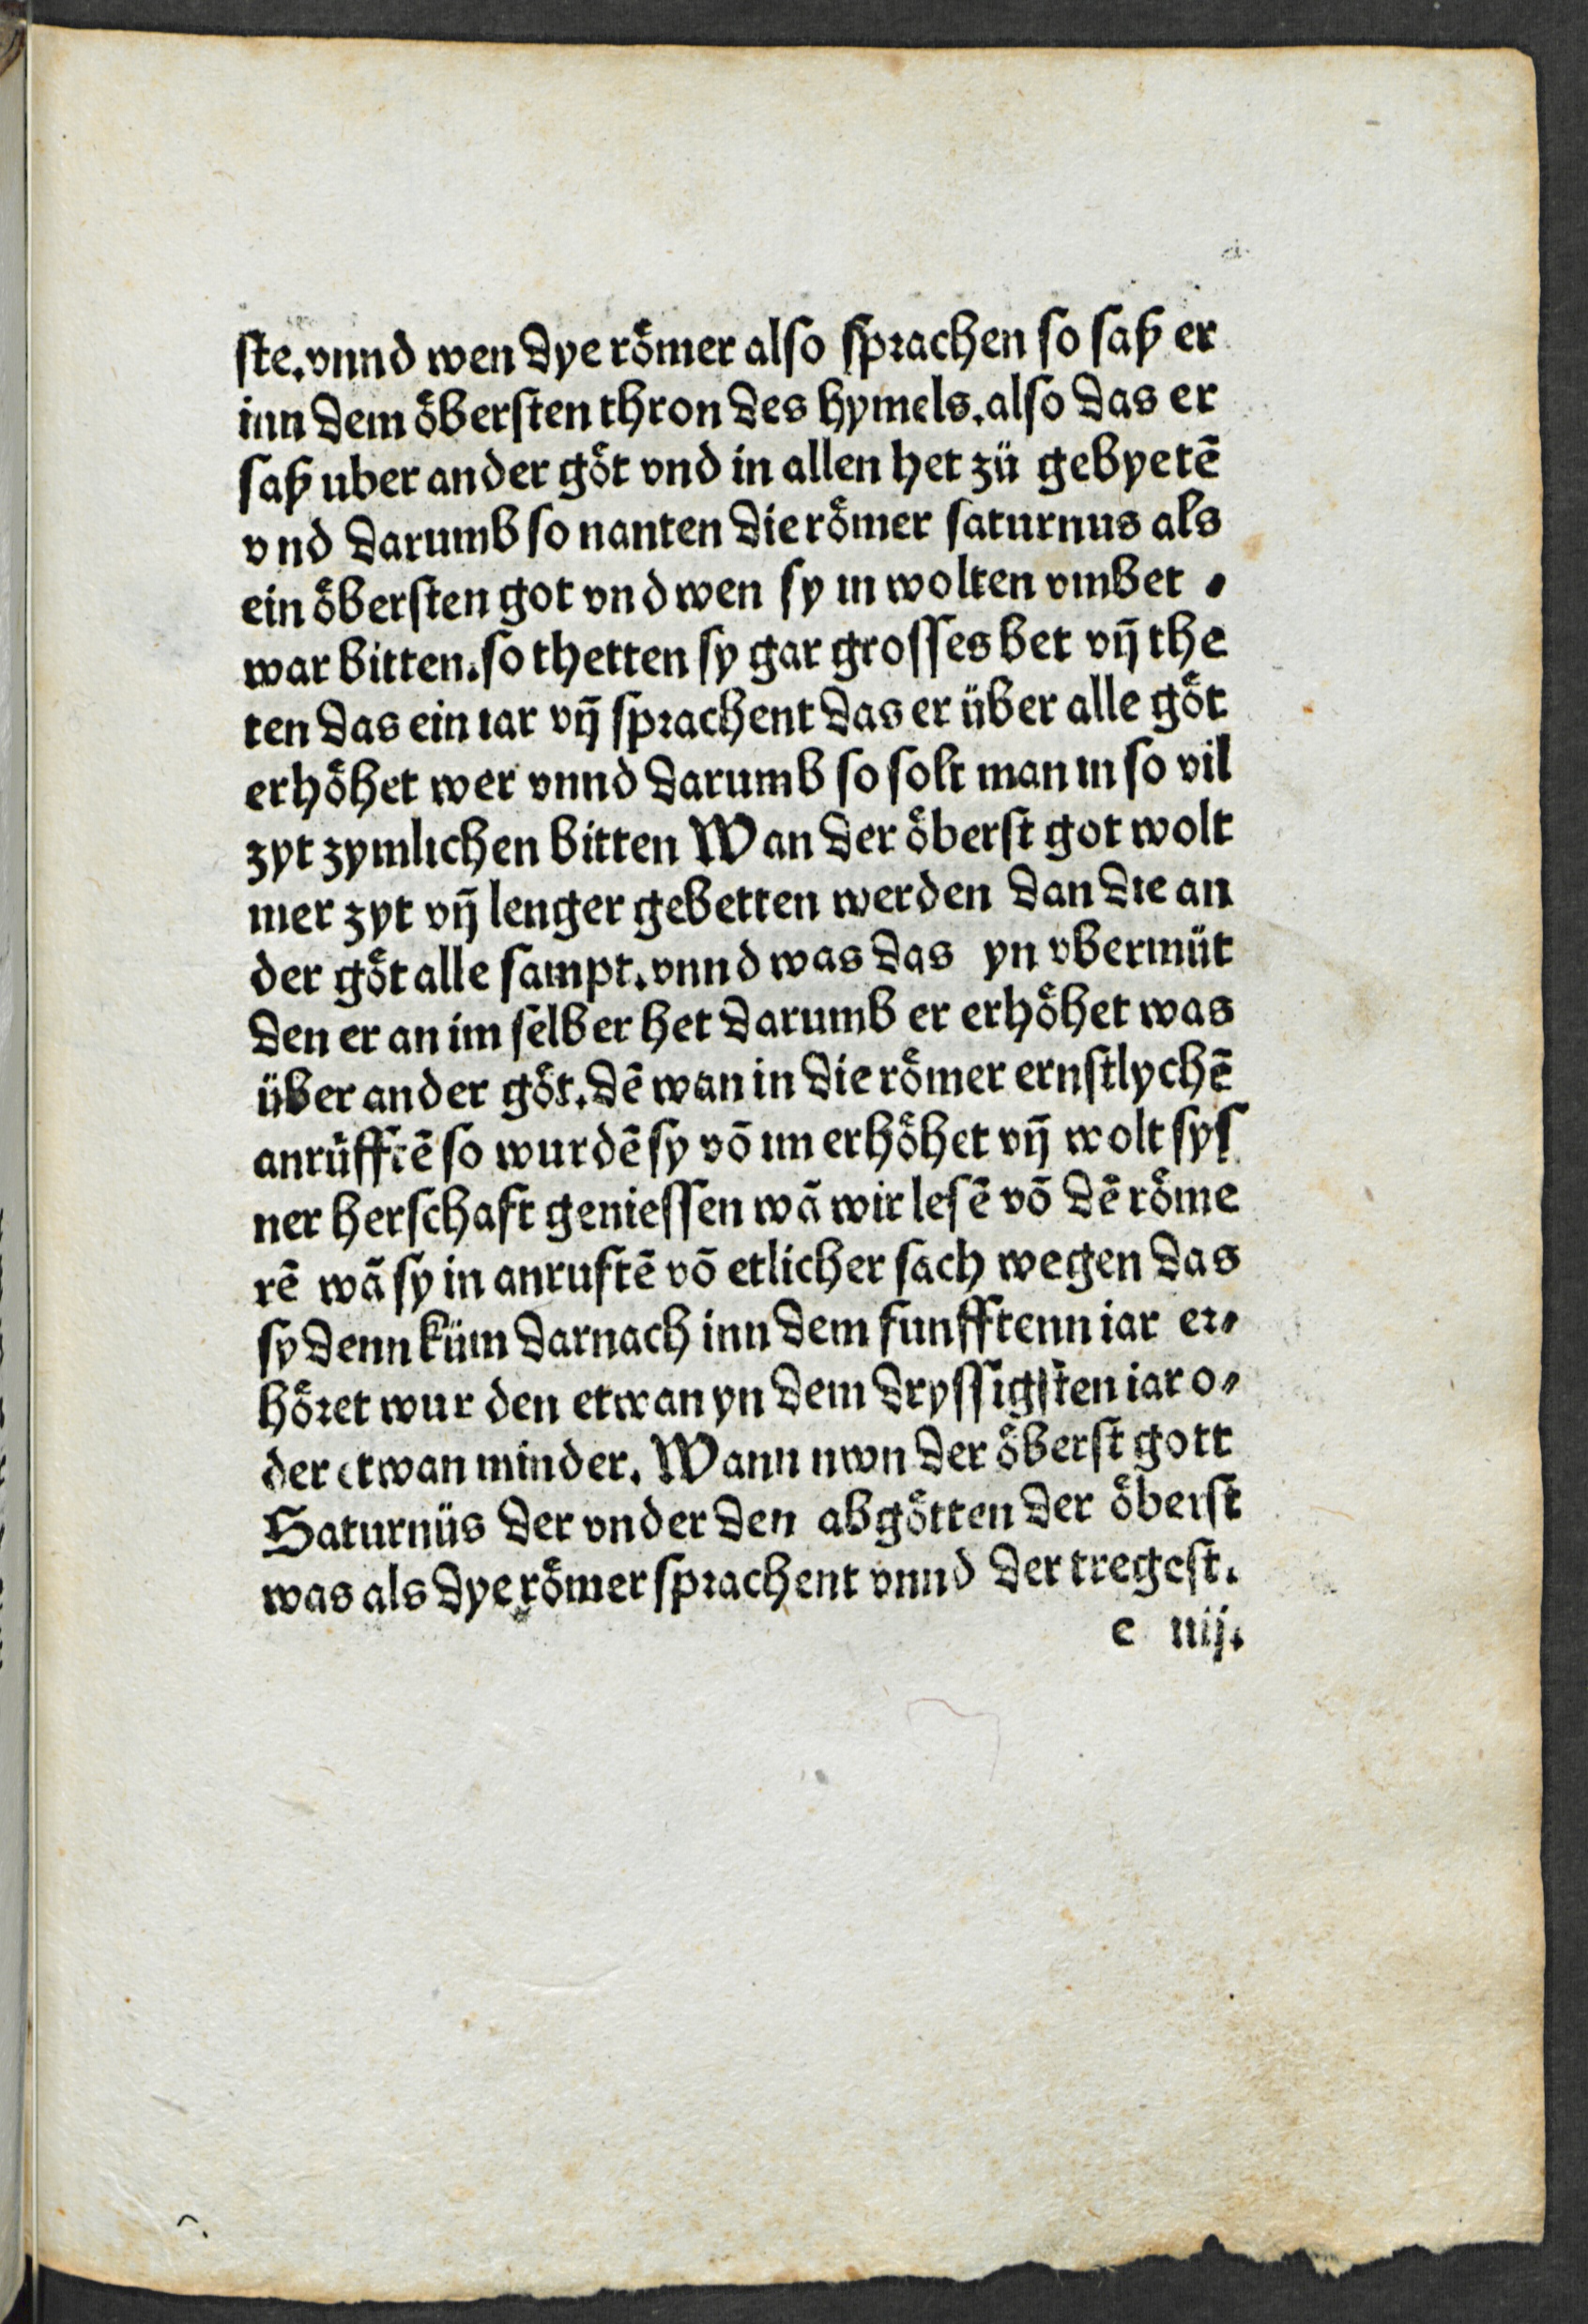 ste.vnnd wen dye römer also sprachen so saß er
inn dem öbersten thron des hymels.also das er
saß uber ander göt vnd in allen het zü gebyetē
vnd darumb so nanten die römer saturnus als
ein öbersten got vnd wen sy in wolten vmbet ⸗
war bitten.so thetten sy gar grosses bet vñ the
ten das ein iar vñ sprachent das er über alle göt
erhöhet wer vnnd darumb so solt man in so vil
zyt zymlichen bitten Wan der öberst got wolt
mer zyt vñ lenger gebetten werden dan die an
der göt alle sampt.vnnd was das yn vbermüt
den er an im selber het darumb er erhöhet was
über ander göt.dē wan in die römer ernstlychē
anrüfftē so wurdē sy vō im erhöhet vñ wolt sys
ner herschaft geniessen wā wir lesē vō dē röme
rē wā sy in anruftē vō etlicher sach wegen das
sy denn küm darnach inn dem funfftenn iar er⸗
höret wur den etwan yn dem dryssigsten iar o⸗
der etwan minder. Wann nwn der öberst gott
Saturnüs der vnder den abgötten der öberst
was als dye römer sprachent vnnd der tregest.
e iiij.